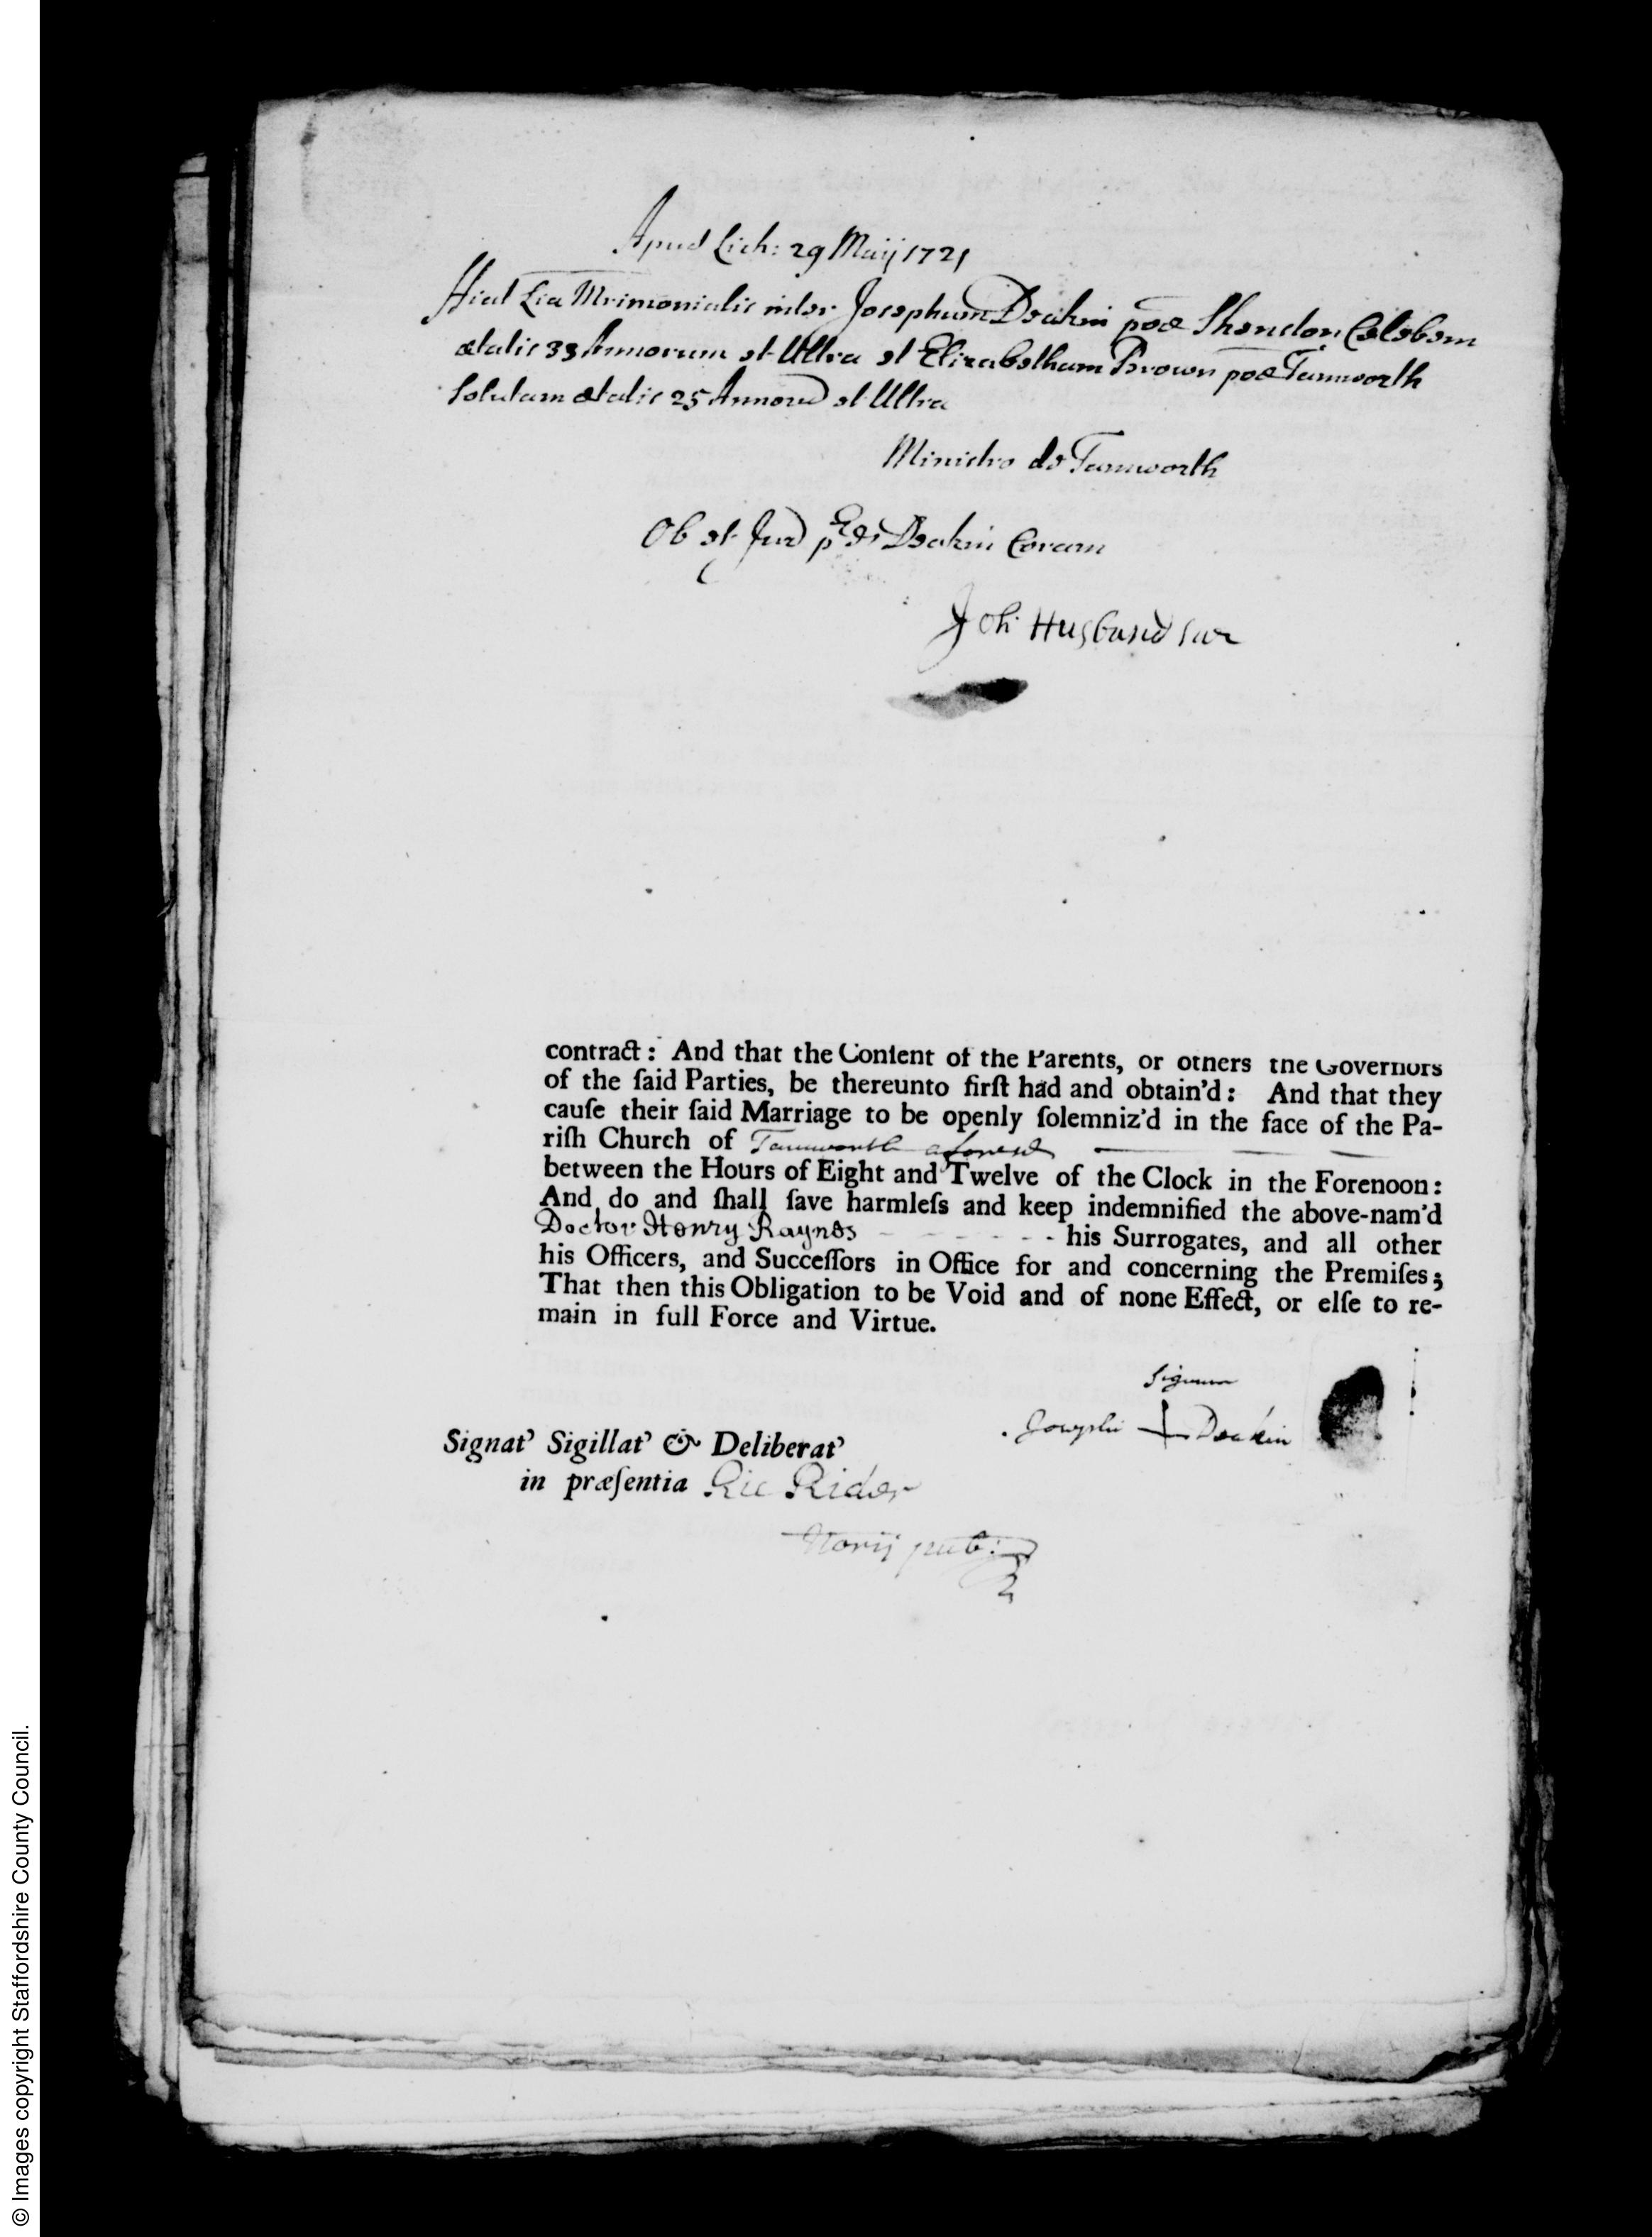 Apud Lich: 29 Maij 1721
Fiat Lia Mrimonialis inter Josephum Deakin poæ Shenston Cælebem
ætatis 33 Annorum et Ultra et Elizabetham Brown poæ Tamworth
Solutam ætatis 25 Annorū et Ultra
Ministro de Tamworth
Ob et Jur p Deakin Coram
Joh: Husband Sur
contract: And that the Conſent of the Parents, or others the Governors
of the ſaid Parties, be thereunto firſt had and obtain'd: And that they
cauſe their ſaid Marriage to be openly ſolemniz'd in the face of the Pa-
riſh Church of Tamworth aforesd
between the Hours of Eight and Twelve of the Clock in the Forenoon:
And do and ſhall ſave harmleſs and keep indemnified the above-nam'd
Doctor Henry Raynes - - - - - - his Surrogates, and all other
his Officers, and Succeſſors in Office for and concerning the Premiſes;
That then this Obligation to be Void and of none Effect, or elſe to re-
main in full Force and Virtue.
Signum
Josephi + Deakin
Signat' Sigillat' & Deliberat'
in præſentia Ric Rider
Norij pub:
© Images copyright Staffordshire County Council.